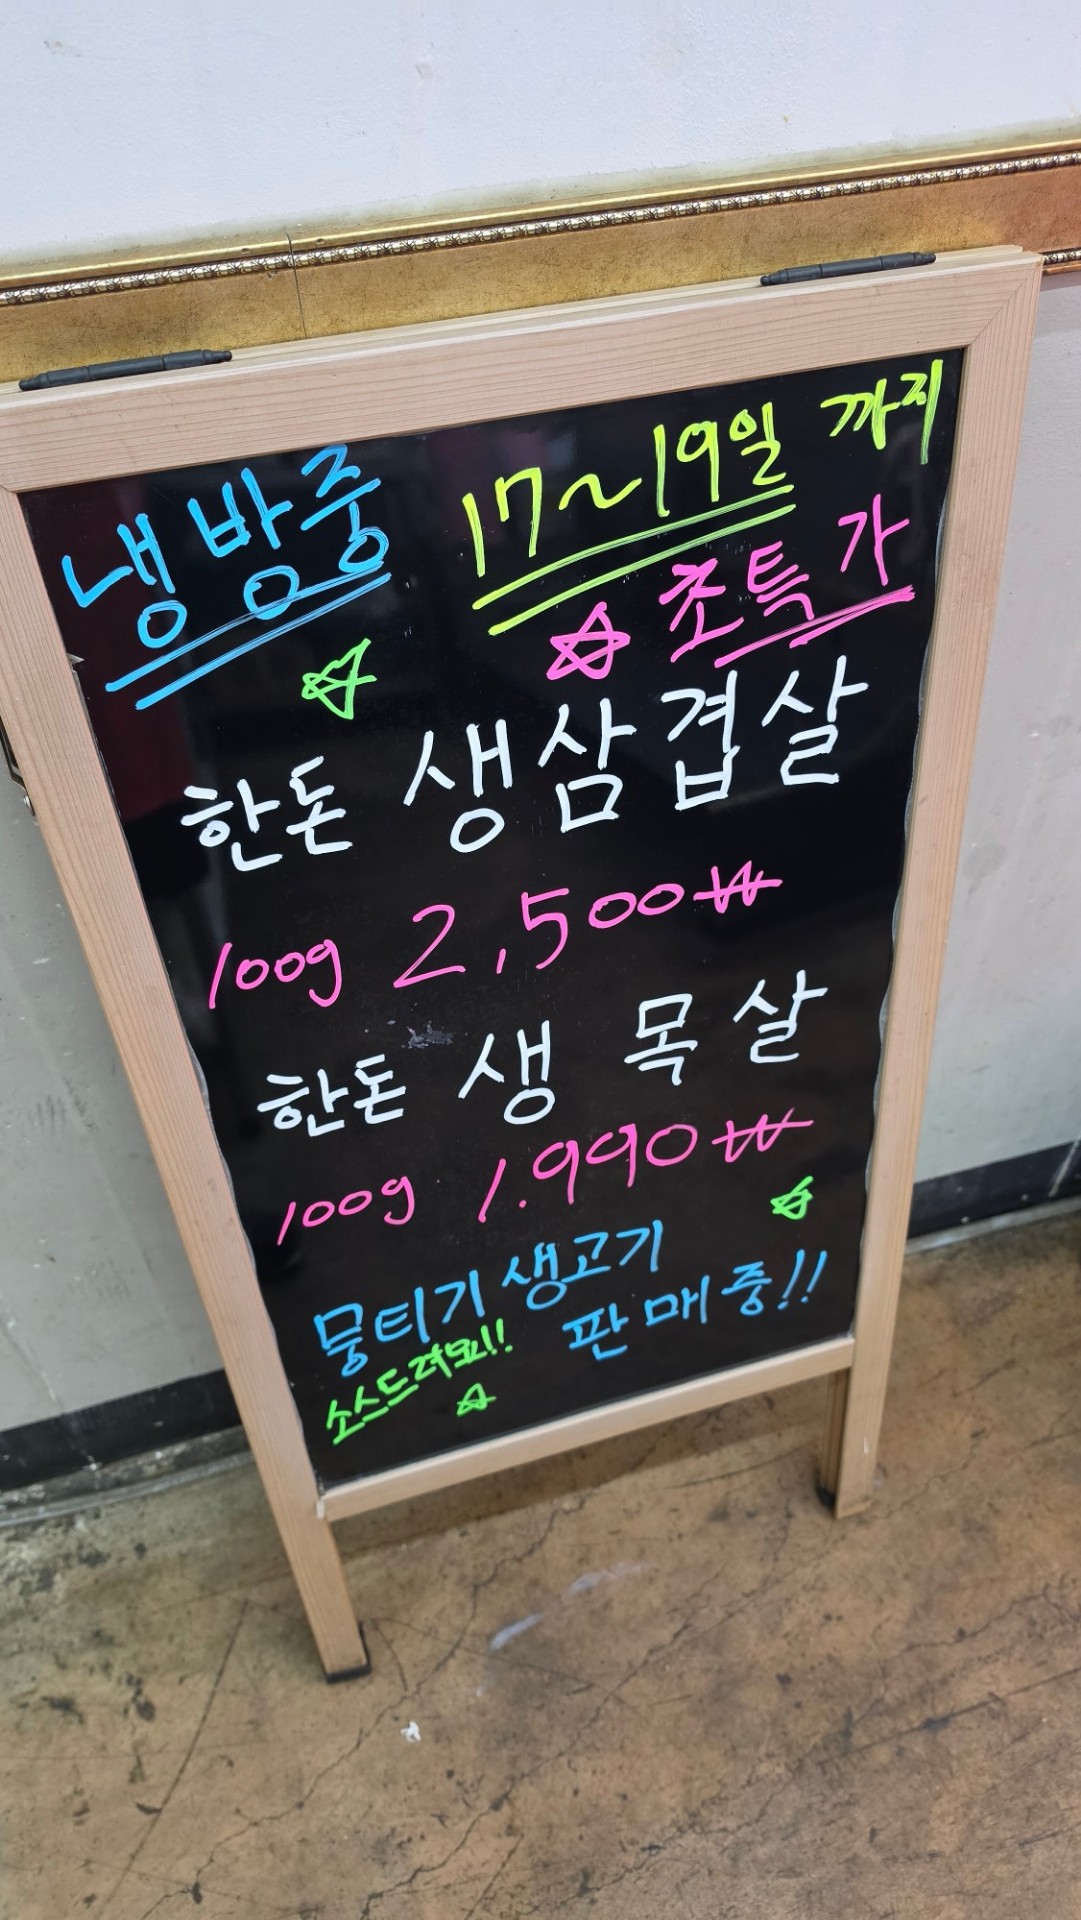 냉방중
17~19일 까지
초특가
한돈 생삼겹살
100g 2,500₩
한돈 생 목살
100g 1.990₩
뭉티기 생고기
판매중!!
소스드려요!!